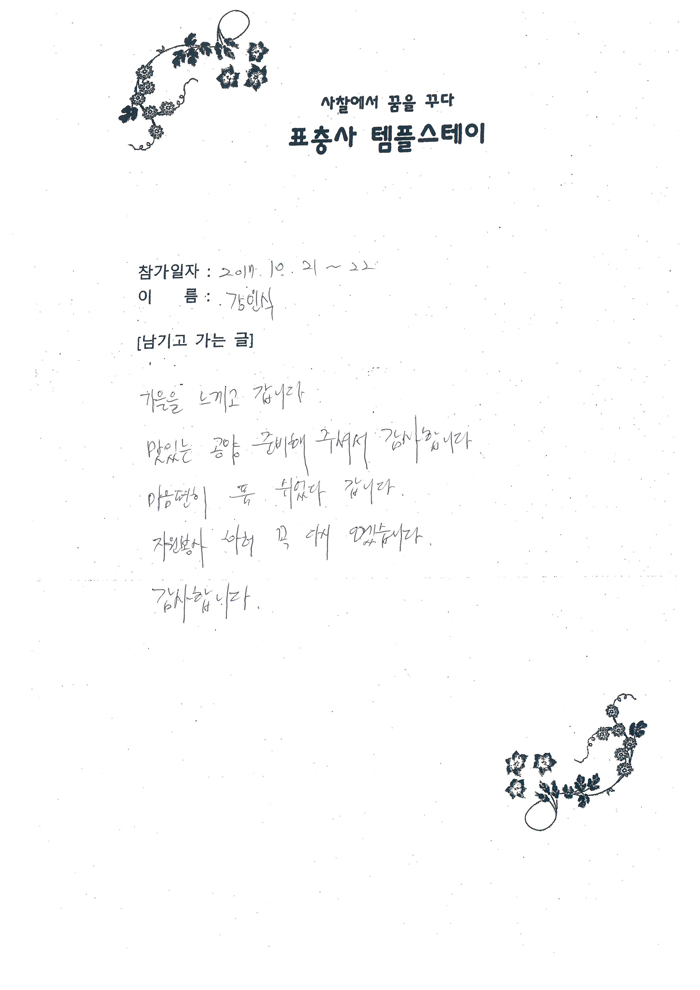 사찰에서 꿈을 꾸다
표충사 템플스테이
참가일자 : 2017. 10. 21 ~ 22
이 름 : 강인식
[남기고 가는 글]
가을을 느끼고 갑니다
맛있는 공양 준비해 주셔서 감사합니다
마음편히 푹 쉬었다 갑니다.
자원봉사 하러 꼭 다시 오겠습니다.
감사합니다.